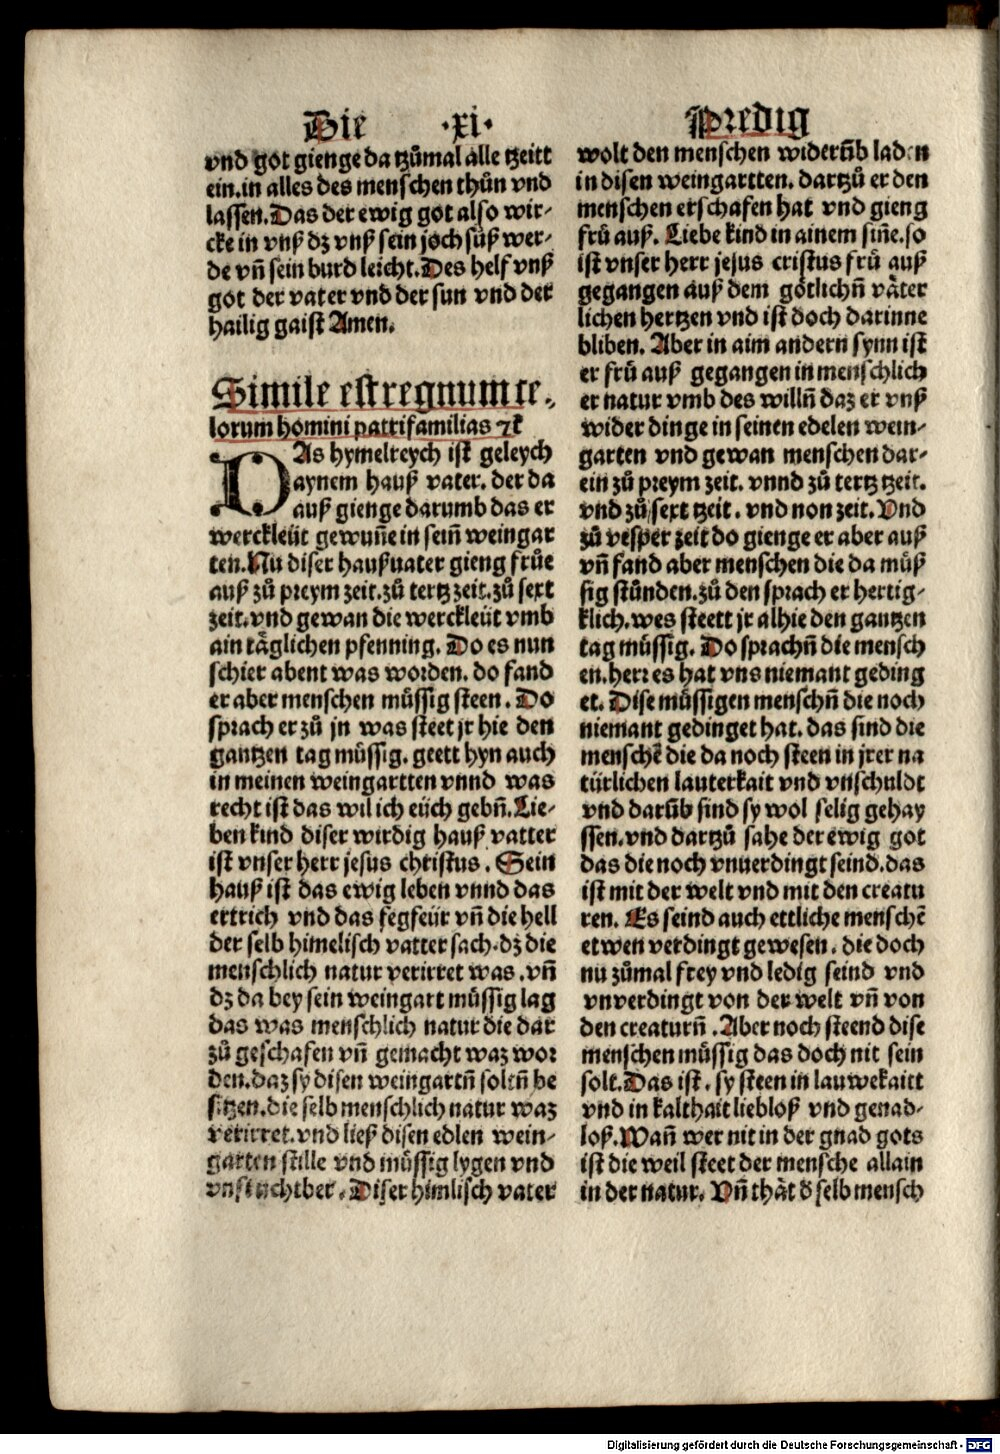 Die ·xi· Predig
vnd got gienge da tzůmal alle tzeitt
ein. in alles des menschen thůn vnd
lassen. Das der ewig got also wir⸗
cke in vnß dz vnß sein joch süß wer⸗
de vn̄ sein burd leicht. Des helf vnß
got der vater vnd der sun vnd der
hailig gaist Amen.
Simile est regnum ce⸗
lorum homini patrifamilias ⁊k
DAs hymelreych ist geleych
aynem hauß vater. der da
auß gienge darumb das er
werckleüt gewun̄e in sein̄ weingar
ten. Nu diser haußuater gieng früe
auß zů preym zeit. zů tertz zeit. zů sext
zeit. vnd gewan die werckleüt vmb
ain täglichen pfenning. Do es nun
schier abent was worden. do fand
er aber menschen müssig steen. Do
sprach er zů jn was steet jr hie den
gantzen tag müssig. geett hyn auch
in meinen weingartten vnnd was
recht ist das wil ich eüch gebn̄. Lie⸗
ben kind diser wirdig hauß vatter
ist vnser herr jesus christus. Sein
hauß ist das ewig leben vnnd das
ertrich vnd das fegfeür vn̄ die hell
der selb himelisch vatter sach. dz die
menschlich natur verirret was. vn̄
dz da bey sein weingart müssig lag
das was menschlich natur die dar
zů geschafen vn̄ gemacht waz wor
den. daz sy disen weingartn̄ soltn̄ be
sitzen. die selb menschlich natur waz
verirret. vnd ließ disen edlen wein⸗
garten stille vnd müssig lygen vnd
vnfruchtber. Diser himlisch vater
wolt den menschen widerūb laden
in disen weingartten. dartzů er den
menschen erschafen hat vnd gieng
frü auß. Liebe kind in ainem sin̄e. so
ist vnser herr jesus cristus frü auß
gegangen auß dem götlichn̄ väter
lichen hertzen vnd ist doch darinne
bliben. Aber in aim andern synn ist
er frü auß gegangen in menschlich
er natur vmb des willn̄ daz er vnß
wider dinge in seinen edelen wein⸗
garten vnd gewan menschen dar⸗
ein zů preym zeit. vnnd zů tertz tzeit.
vnd zů sext tzeit. vnd non zeit. Vnd
zů vesper zeit do gienge er aber auß
vn̄ fand aber menschen die da müß
sig stůnden. zů den sprach er hertig⸗
klich. wes steett jr alhie den gantzen
tag müssig. Do sprachn̄ die mensch
en. herr es hat vns niemant geding
et. Dise müssigen menschn̄ die noch
niemant gedinget hat. das sind die
menschē die da noch steen in jrer na
türlichen lauterkait vnd vnschuldt
vnd darūb sind sy wol selig gehay
ssen. vnd dartzů sahe der ewig got
das die noch vnuerdingt seind. das
ist mit der welt vnd mit den creatu
ren. Es seind auch ettliche menschē
etwen verdingt gewesen. die doch
nu zůmal frey vnd ledig seind vnd
vnverdingt von der welt vn̄ von
den creaturn̄. Aber noch steend dise
menschen müssig das doch nit sein
solt. Das ist. sy steen in lauwekaitt
vnd in kalthait liebloß vnd genad⸗
loß. Wan̄ wer nit in der gnad gots
ist die weil steet der mensche allain
in der natur. Vn̄ thät d̄ selb mensch
Digitalisierung gefördert durch die Deutsche Forschungsgemeinschaft - DFG